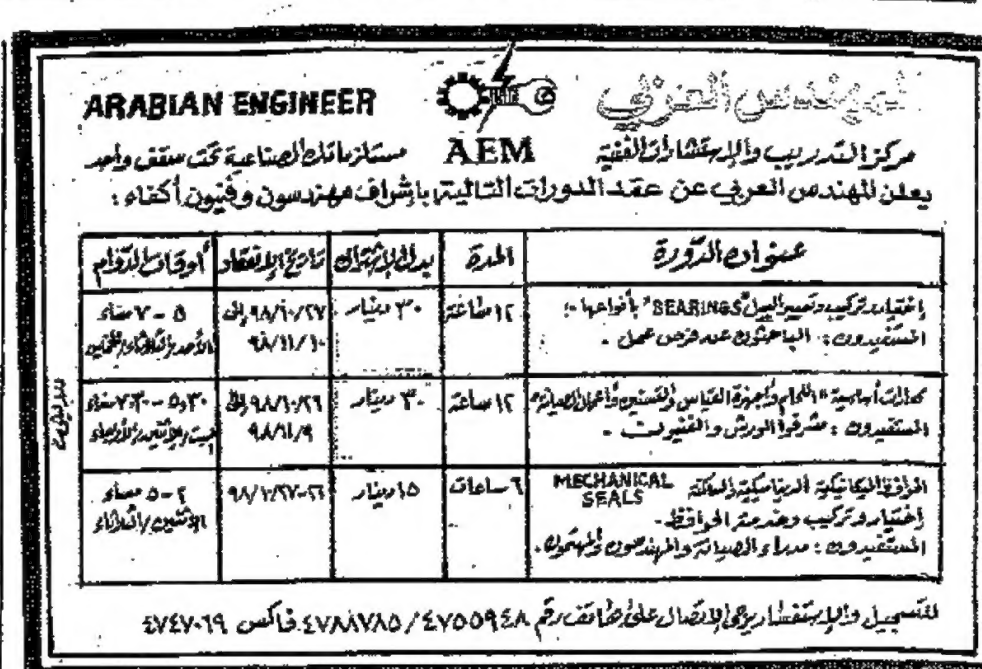 ARABIAN ENGINEER
المهندس العربي
AEM
مركز التدريب والإستشارات الفنية
مستلزماتك الصناعية تحت سقف واحد
يعلن المهندس العربي عن عقد الدورات التالية بإشراف مهندسون وفنيون أكفاء :
عنوان الدورة
المدة
بدل الإشتراك
تاريخ الإنعقاد
أوقات الدوام
إختيار وتركيب وتغيير البيل "BEARINGS" بأنواعها :-
المستفيدون : الباحثون عن فرص عمل .
١٢ ساعة
٣٠ دينار
٩٨/١٠/٢٧ إلى
٩٨/١١/١٠
٥ - ٧ مساء
الأحد/الثلاثاء/الخميس
مهارات أساسية "اللحام وأجهزة القياس والتسنين وأعمال الصيانة"
المستفيدون : مشرفوا الورش والفنيون .
١٢ ساعة
٣٠ دينار
٩٨/١٠/٢٦ إلى
٩٨/١١/٩
٥,٣٠ - ٧,٣٠ مساء
السبت/الإثنين/الأربعاء
الميكانيكية الديناميكية MECHANICAL
SEALS
إختيار وتركيب وخدمة الحوافظ .
المستفيدون : مدراء الصيانة والمهندسون والمهتمون .
٦ ساعات
١٥ دينار
٢٦-٢٧
٢ - ٥ مساء
الإثنين/الثلاثاء
للتسجيل والإستفسار يرجى الإتصال على هاتف رقم ٤٧٥٥٩٤٨ / ٤٧٨٨٧٨٥ . فاكس ٤٧٤٧٠٦٩